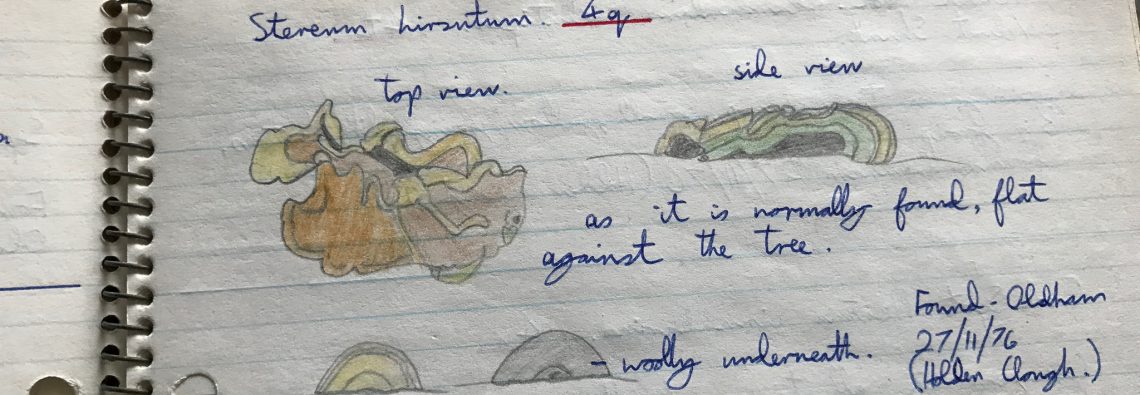 Stereum hirsutum. 4q
top view.
side view
as it is normally found, flat
against the tree.
Found - Oldham
27/11/76
(Holden Clough.)
- woolly underneath.